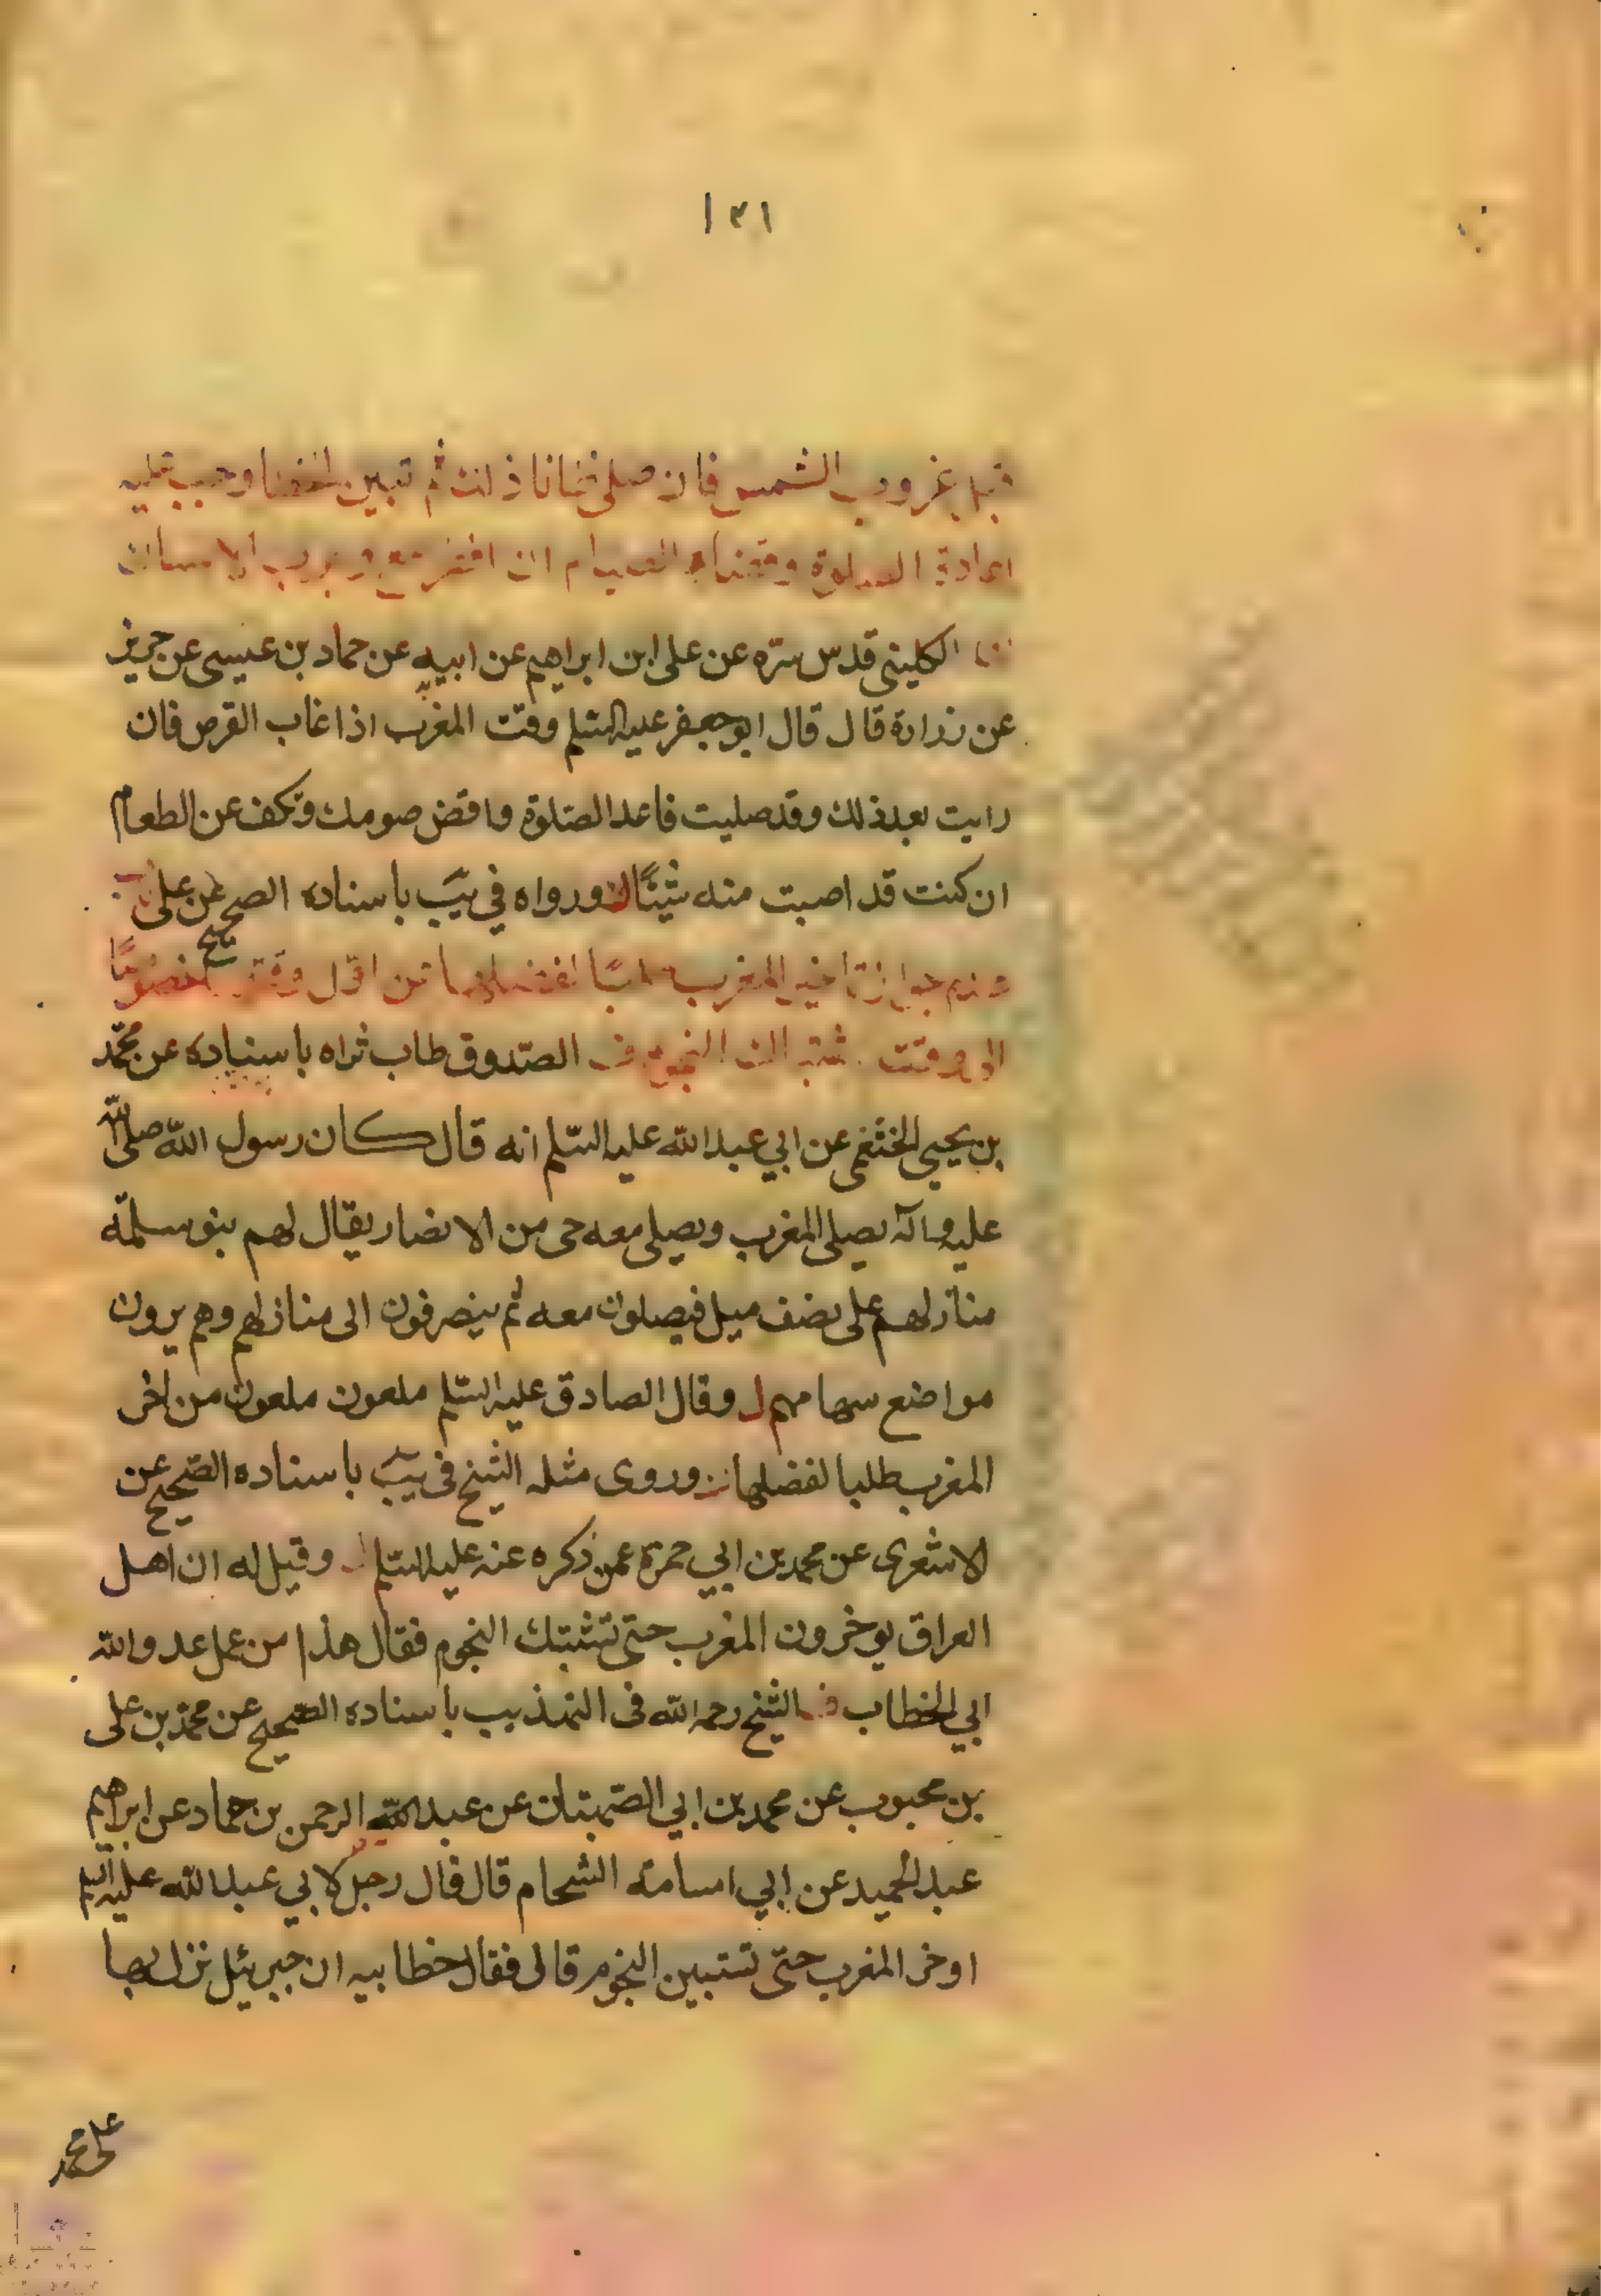 ١٣١
قبل غروب الشمس فان صلى ظانا ذلك ثم تبين الخطا وجب عليه
اعادة الصلوة وقضاء الصيام ان افطر مع وجوب الامساك
الكليني قدس سره عن على ابن ابراهيم عن ابيه عن حماد بن عيسى عن حريز
عن زرارة قال قال ابو جعفر عليه السلم وقت المغرب اذا غاب القرص فان
رايت بعد ذلك وقد صليت فاعد الصلوة واقض صومك وتكف عن الطعام
ان كنت قد اصبت منه شيئًا ورواه في يب باسناده الصحيح عن على
عدم جواز تاخير المغرب طلبًا لفضلها عن اول وقتها خصوصًا
الى وقت اشتباك النجوم الصدوق طاب ثراه باسناده عن محمد
بن يحيى الخثعمى عن ابي عبد الله عليه السلم انه قال كان رسول الله صلى الله
عليه وآله يصلى المغرب ويصلى معه حى من الانصار يقال لهم بنو سلمة
منازلهم على نصف ميل فيصلون معه ثم ينصرفون الى منازلهم وهم يرون
مواضع سهامهم وقال الصادق عليه السلم ملعون ملعون من اخر
المغرب طلبا لفضلها وروى مثله الشيخ فى يب باسناده الصحيح عن
الاشعرى عن محمد بن ابي حمزة عمن ذكره عنه عليه السلم وقيل له ان اهل
العراق يوخرون المغرب حتى تشتبك النجوم فقال هذا من عمل عدو الله
ابي الخطاب الشيخ رحمه الله فى التهذيب باسناده الصحيح عن محمد بن على
بن محبوب عن محمد بن ابي الصهبان عن عبد الرحمن بن حماد عن ابراهيم
عبد الحميد عن ابي اسامة الشحام قال قال رجل لابي عبد الله عليه السلم
اوخر المغرب حتى تستبين النجوم قال فقال خطابيه ان جبرئيل نزل بها
على محمد